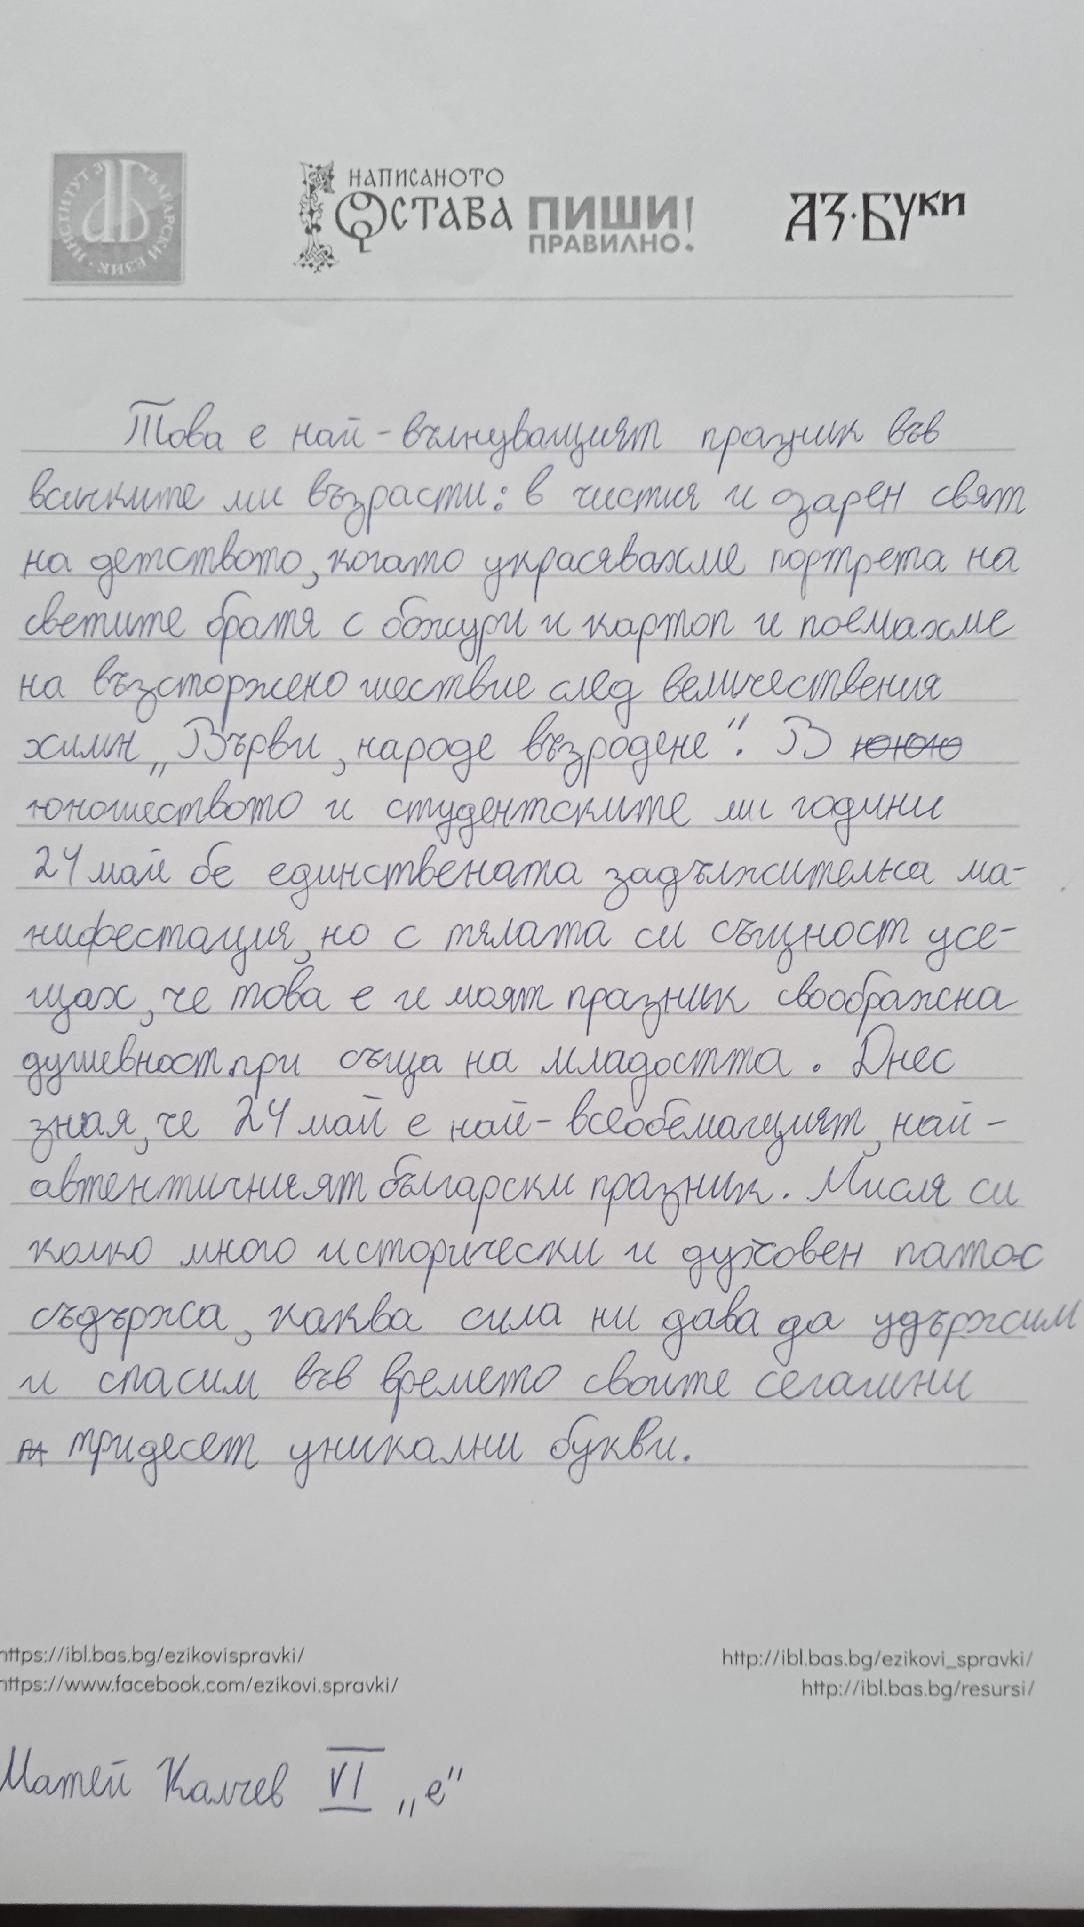 ИНСТИТУТ ЗА БЪЛГАРСКИ ЕЗИК
НАПИСАНОТО
ОСТАВА
ПИШИ!
ПРАВИЛНО.
АЗ·БУКИ
Това е най-вълнуващият празник във
всичките ми възрасти: в чистия и озарен свят
на детството, когато украсявахме портрета на
светите братя с божури и картоп и поемахме
на възсторжено шествие след величествения
химн „Върви, народе възродене“. В
юношеството и студентските ми години
24 май бе единствената задължителна ма-
нифестация, но с тялата си същност усе-
щах, че това е и моят празник своображна
душевност при съща на младостта. Днес
зная, че 24 май е най-всеобемащият, най-
автентичният български празник. Мисля си
колко много исторически и духовен патос
съдържа, каква сила ни дава да удържим
и спасим във времето своите сегашни
тридесет уникални букви.
https://ibl.bas.bg/ezikovispravki/
https://www.facebook.com/ezikovi.spravki/
http://ibl.bas.bg/ezikovi_spravki/
http://ibl.bas.bg/resursi/
Матей Калчев VI „е“